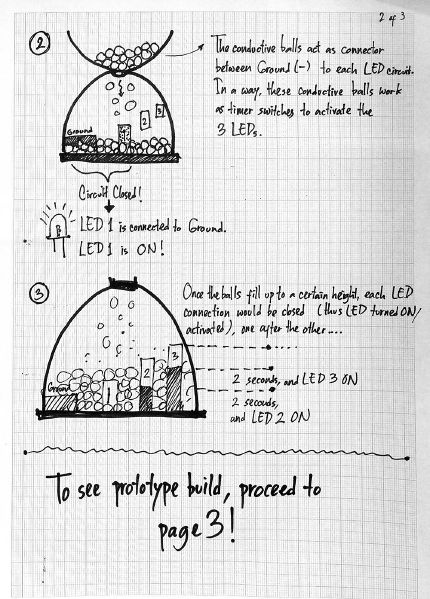 2 of 3
2
The conductive balls act as connector
between Ground (-) to each LED circuit.
In a way, these conductive balls work
as timer switches to activate the
3 LEDs.
3
2
1
Ground
Circuit Closed!
LED 1 is connected to Ground.
LED 1 is ON!
3
Once the balls fill up to a certain height, each LED
connection would be closed (thus LED turned ON/
activated), one after the other....
3
2
1
Ground
2 seconds, and LED 3 ON
2 seconds,
and LED 2 ON
To see prototype build, proceed to
page 3!